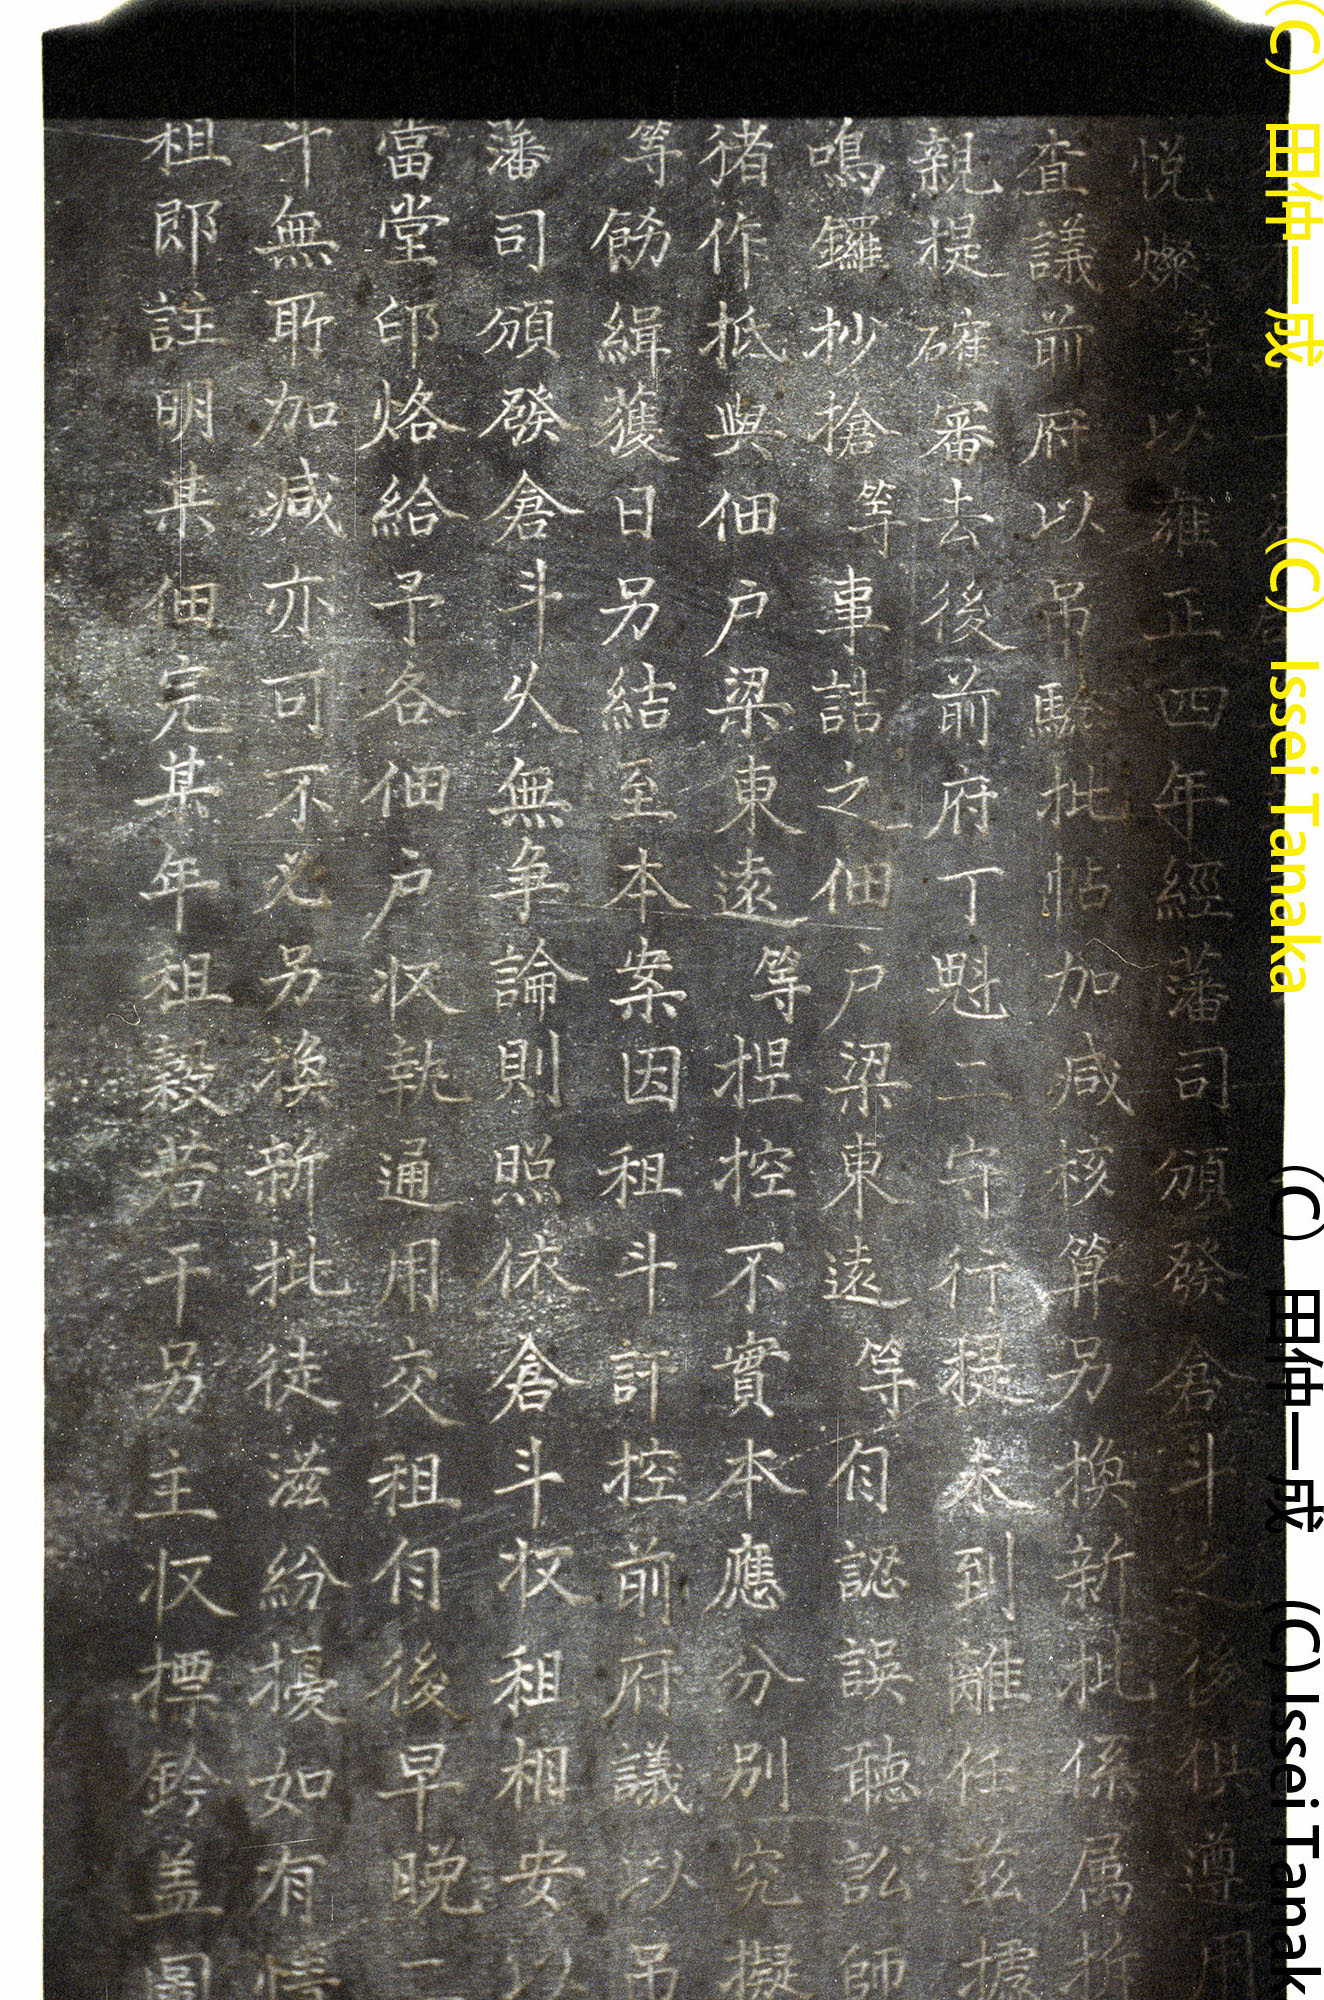 悦燦等以雍正四年經藩司頒發倉斗之後俱遵用
查議前府以吊驗批帖加减核算另換新批係属折
親提確審去後前府丁魁二守行提未到離任兹據
鳴鑼抄搶等事詰之佃户梁東遠等自認誤聽訟師
作抵與佃户梁東遠等捏控不實本應分别究擬
等飭緝獲日另結至本案因租斗訐控前府議以吊
藩司頒發倉斗久無争論則照依倉斗权租相安以
當堂印烙給予各佃户收執通用交租自後早晚二
斗無聁加减亦可不必另换新批徒滋紛擾如有
租郎註明某佃完某年租穀若干另主收標鈐盖圖
(C) 田仲一成 (C) Issei Tanaka
(C) 田仲一成 (C) Issei Tanak